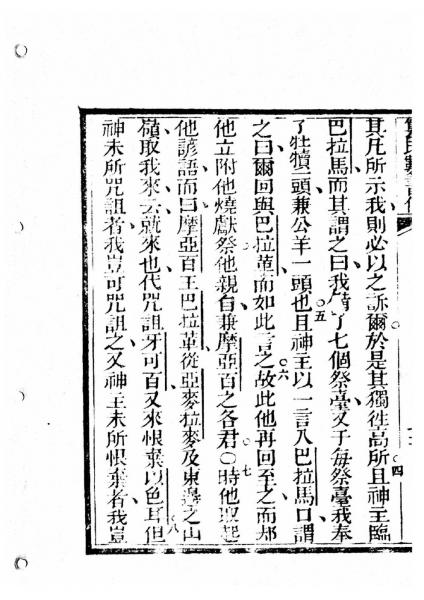 其凡所示我則必以之訴爾於是其獨徃高所且神主臨
四
巴拉馬而其謂之曰我備了七個祭臺又于每祭臺我奉
了牡犢一頭兼公羊一頭也且神主以一言入巴拉馬口謂
五
之曰爾回與巴拉革而如此言之故此他再回至之而却
六
他立附他燒獻祭他親自兼摩亞百之各君〇時他取起
七
他諺語而曰摩亞百王巴拉革從亞麥拉麥及東邊之山
嶺取我來云就來也代咒詛牙可百又來恨棄以色耳但
八
神未所咒詛者我豈可咒詛之又神主未所恨棄者我豈